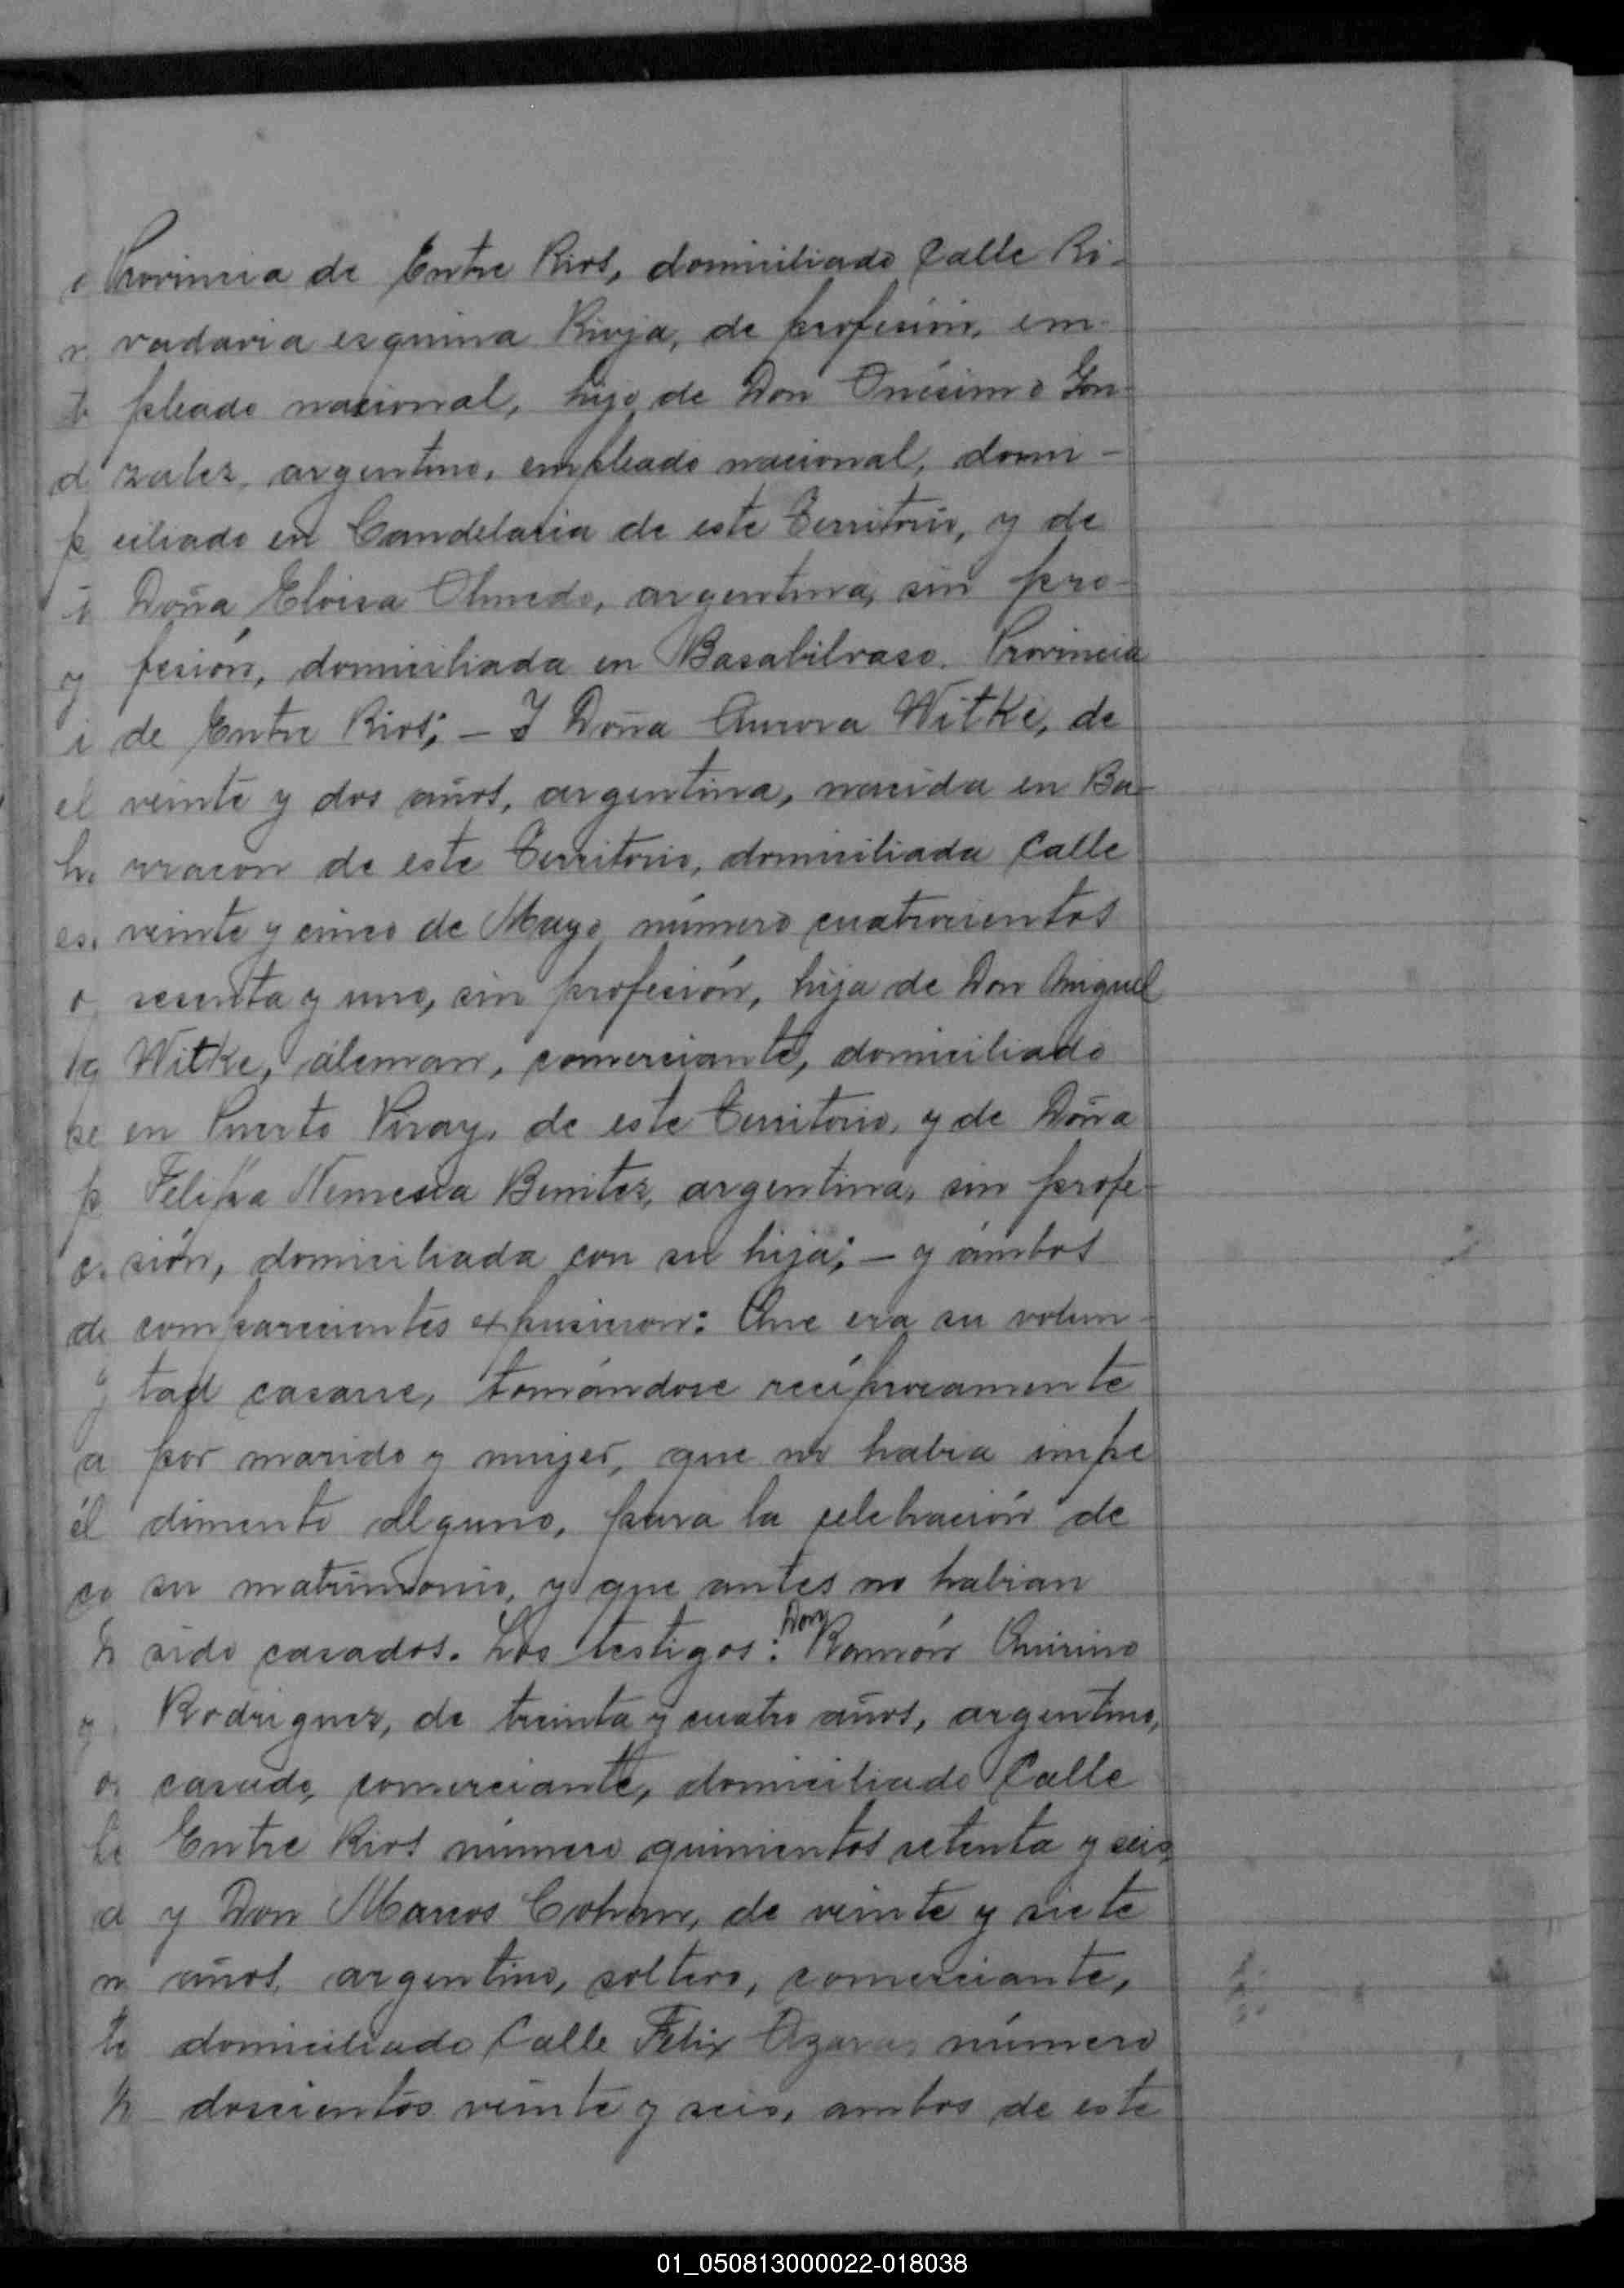 Provincia de Entre Rios, domiciliado Calle Ri-
vadavia esquina Rioja, de profesión, em-
pleado nacional, hijo de Don Onésimo Gon-
zalez, argentino, empleado nacional, domi-
ciliado en Candelaria de este Territorio, y de
Doña Eloisa Olmedo, argentina, sin pro-
fesión, domiciliada en Basabilvaso. Provincia
de Entre Rios; — Y Doña Aurora Witke, de
veinte y dos años, argentina, nacida en Ba-
rracon de este Territorio, domiciliada Calle
veinte y cinco de Mayo número cuatrocientos
sesenta y uno, sin profesión, hija de Don Miguel
Witke, áleman, comerciante, domiciliado
en Puerto Piray, de este Territorio, y de Doña
Felipa Nemesia Benitez, argentina, sin profe-
sión, domiciliada con su hija; — y ámbos
comparecientes expusieron: Que era su volun-
tad casarse, tomándose recíprocamente
por marido y mujer, que no habia impe
dimento alguno, para la celebración de
su matrimonio, y que antes no habian
sido casados. Los testigos: Don Ramón Quirino
Rodriguez, de treinta y cuatro años, argentino,
casado, comerciante, domiciliado Calle
Entre Rios número quinientos setenta y seis,
y Don Marcos Cohan, de veinte y siete
años, argentino, soltero, comerciante,
domiciliado Calle Felix Azara, número
doscientos veinte y seis, ambos de este
01_050813000022-018038